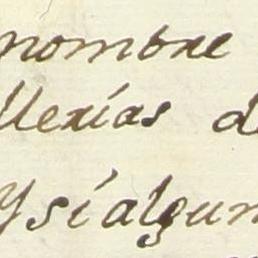 nombre
Mexias d
Ysialgun